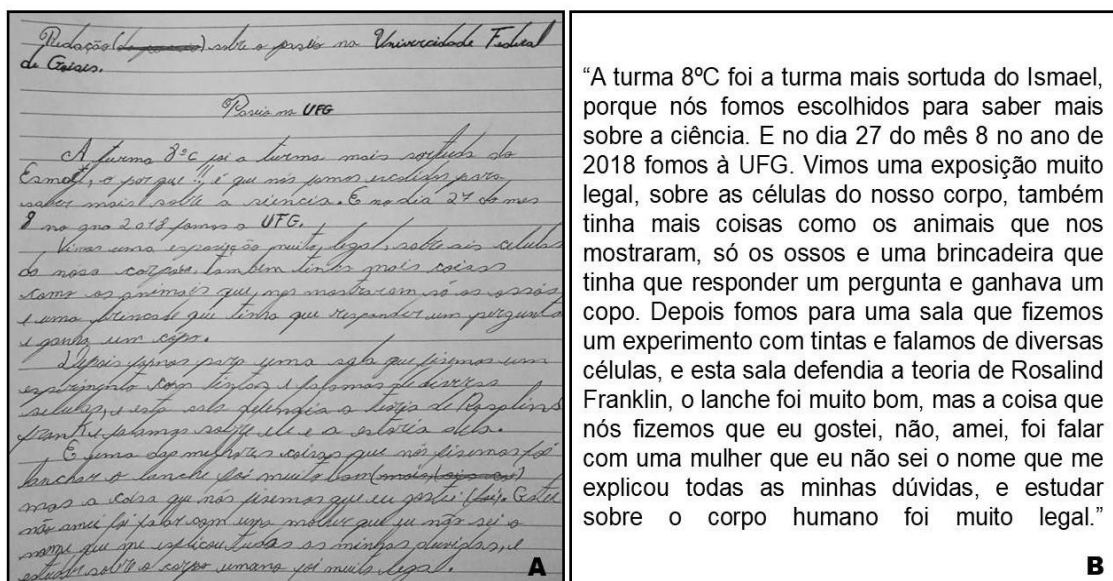 Redação (de passeio) sobre o passeio na Univercidade Federal
de Goiaes.
Passeio na UFG
A turma 8ºC foi a turma mais sortuda do
Esmael, o por que!!, é que nós fomos escolidos para
saber mais sobre a siencia. E no dia 27 do mes
8 no ano 2018 fomos a UFG.
Vimos uma exposição muito legal, sobre as celulas
do noso corpo, tambem tinha mais coisas
como os animais que nos mostraram só os ossos
e uma brincade que tinha que responder um pergunta
e ganha um copo.
Depois fomos para uma sala que fizemos um
esperimento com tintas e falamos de diversas
celulas, e esta sala defendia a teoria de Rosalind
frank e falamos sobre ele e a estoria dela.
E uma das melhores coisas que nós fizemos foi
lanchar o lanche foi muito bom
mas a coisa que nós fizemos que eu gostei Gostei
não amei foi falar com uma molher que eu não sei o
nome que me esplicou tudas as minhas duvidas, e
estudar sobre o corpo umano foi muito legal.
A
“A turma 8ºC foi a turma mais sortuda do Ismael,
porque nós fomos escolhidos para saber mais
sobre a ciência. E no dia 27 do mês 8 no ano de
2018 fomos à UFG. Vimos uma exposição muito
legal, sobre as células do nosso corpo, também
tinha mais coisas como os animais que nos
mostraram, só os ossos e uma brincadeira que
tinha que responder um pergunta e ganhava um
copo. Depois fomos para uma sala que fizemos
um experimento com tintas e falamos de diversas
células, e esta sala defendia a teoria de Rosalind
Franklin, o lanche foi muito bom, mas a coisa que
nós fizemos que eu gostei, não, amei, foi falar
com uma mulher que eu não sei o nome que me
explicou todas as minhas dúvidas, e estudar
sobre o corpo humano foi muito legal.”
B